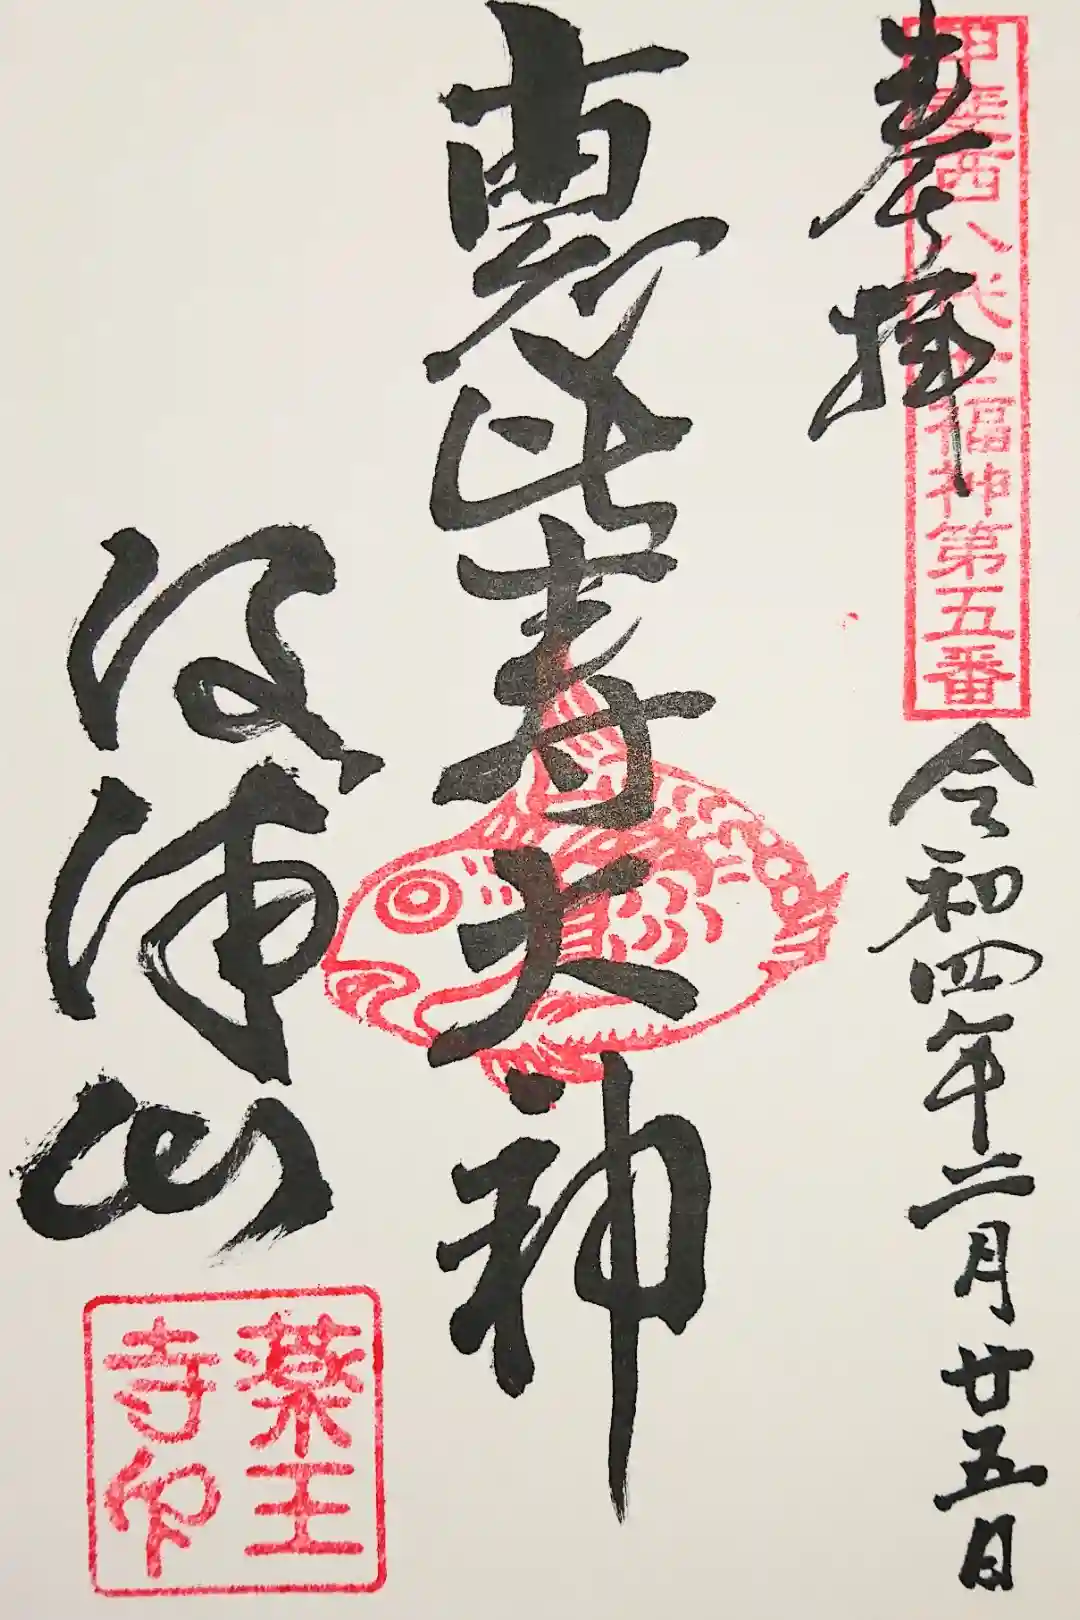 奉拝
甲斐西八代七福神第五番
令和四年二月廿五日
恵比寿大神
河浦山
薬王寺印